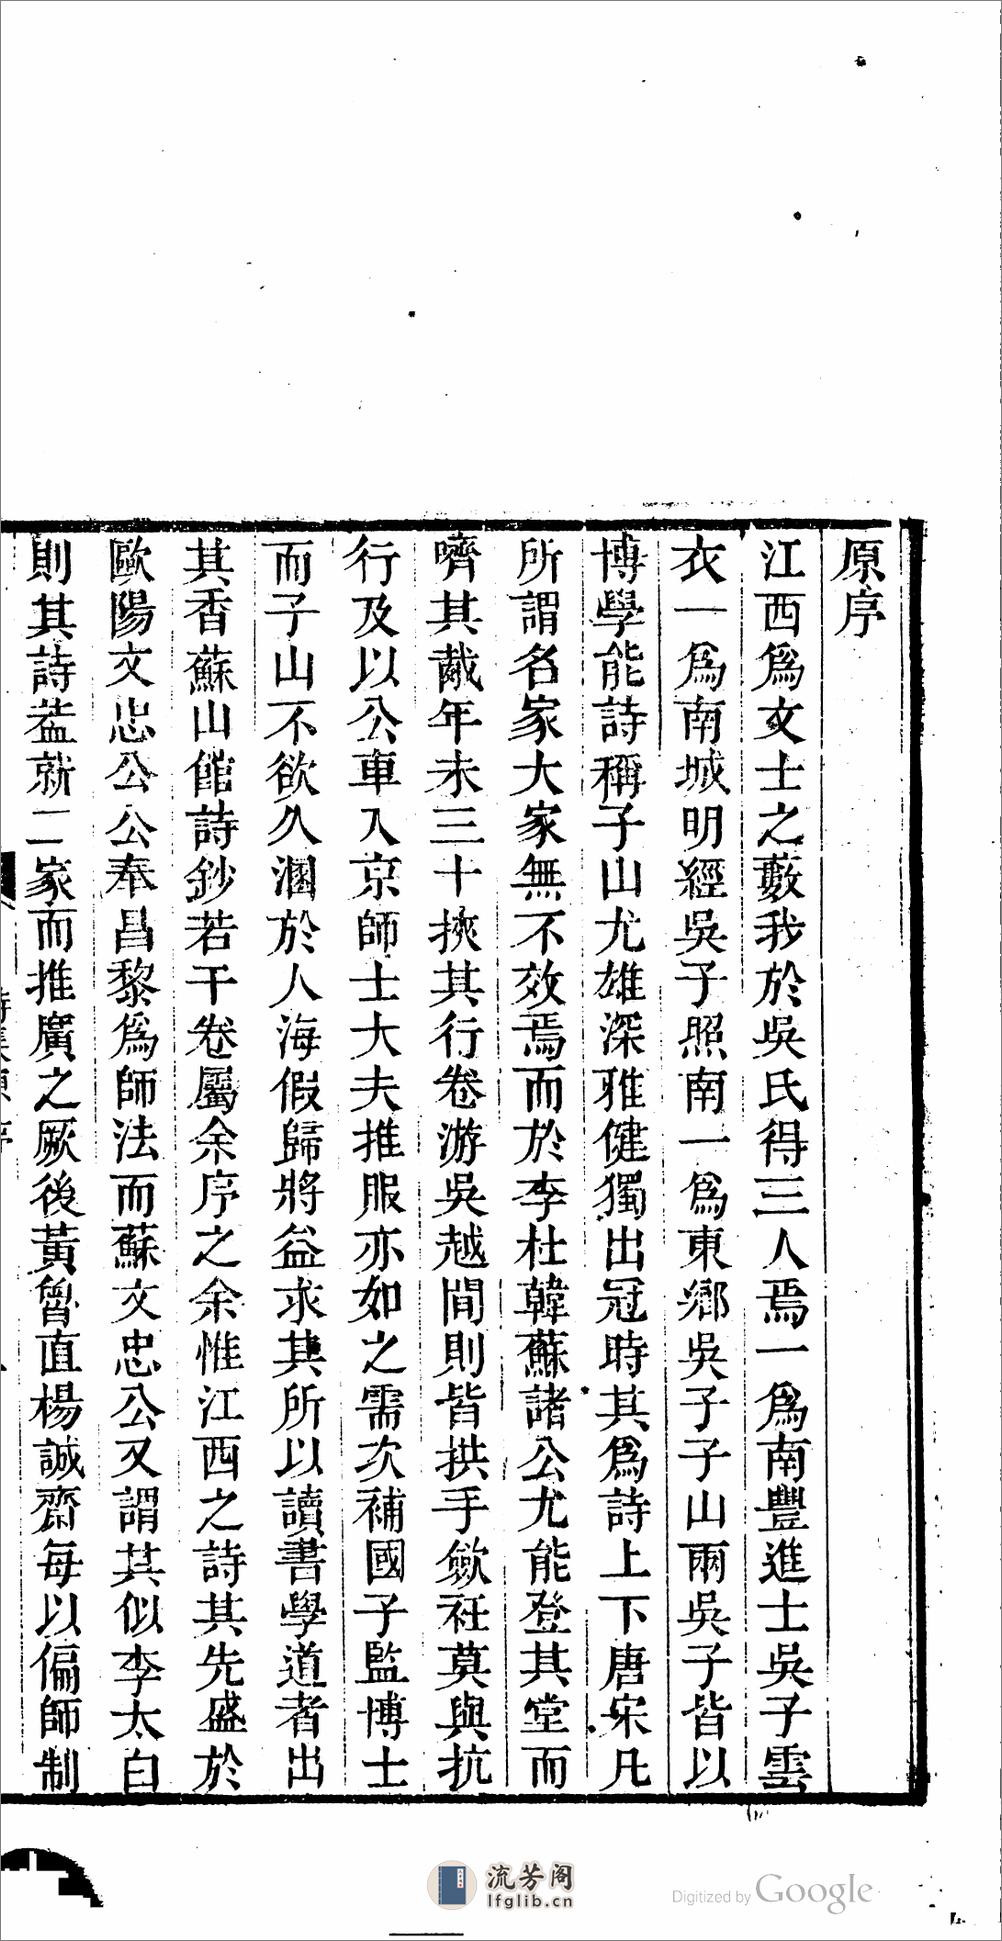 原序
江西爲文士之藪我於吳氏得三人焉一爲南豐進士吳子雲
衣一爲南城明經吳子照南一爲東鄉吳子子山兩吳子皆以
博學能詩稱子山尤雄深雅健獨出冠時其爲詩上下唐宋凡
所謂名家大家無不效焉而於李杜韓蘇諸公尤能登其堂而
嚌其胾年未三十挾其行卷游吳越間則皆拱手斂衽莫與抗
行及以公車入京師士大夫推服亦如之需次補國子監博士
而子山不欲久溷於人海假歸將益求其所以讀書學道者出
其香蘇山館詩鈔若干卷屬余序之余惟江西之詩其先盛於
歐陽文忠公公奉昌黎爲師法而蘇文忠公又謂其似李太白
則其詩葢就二家而推廣之厥後黃魯直楊誠齋每以偏師制
流芳阁
lfglib.cn
Digitized by Google